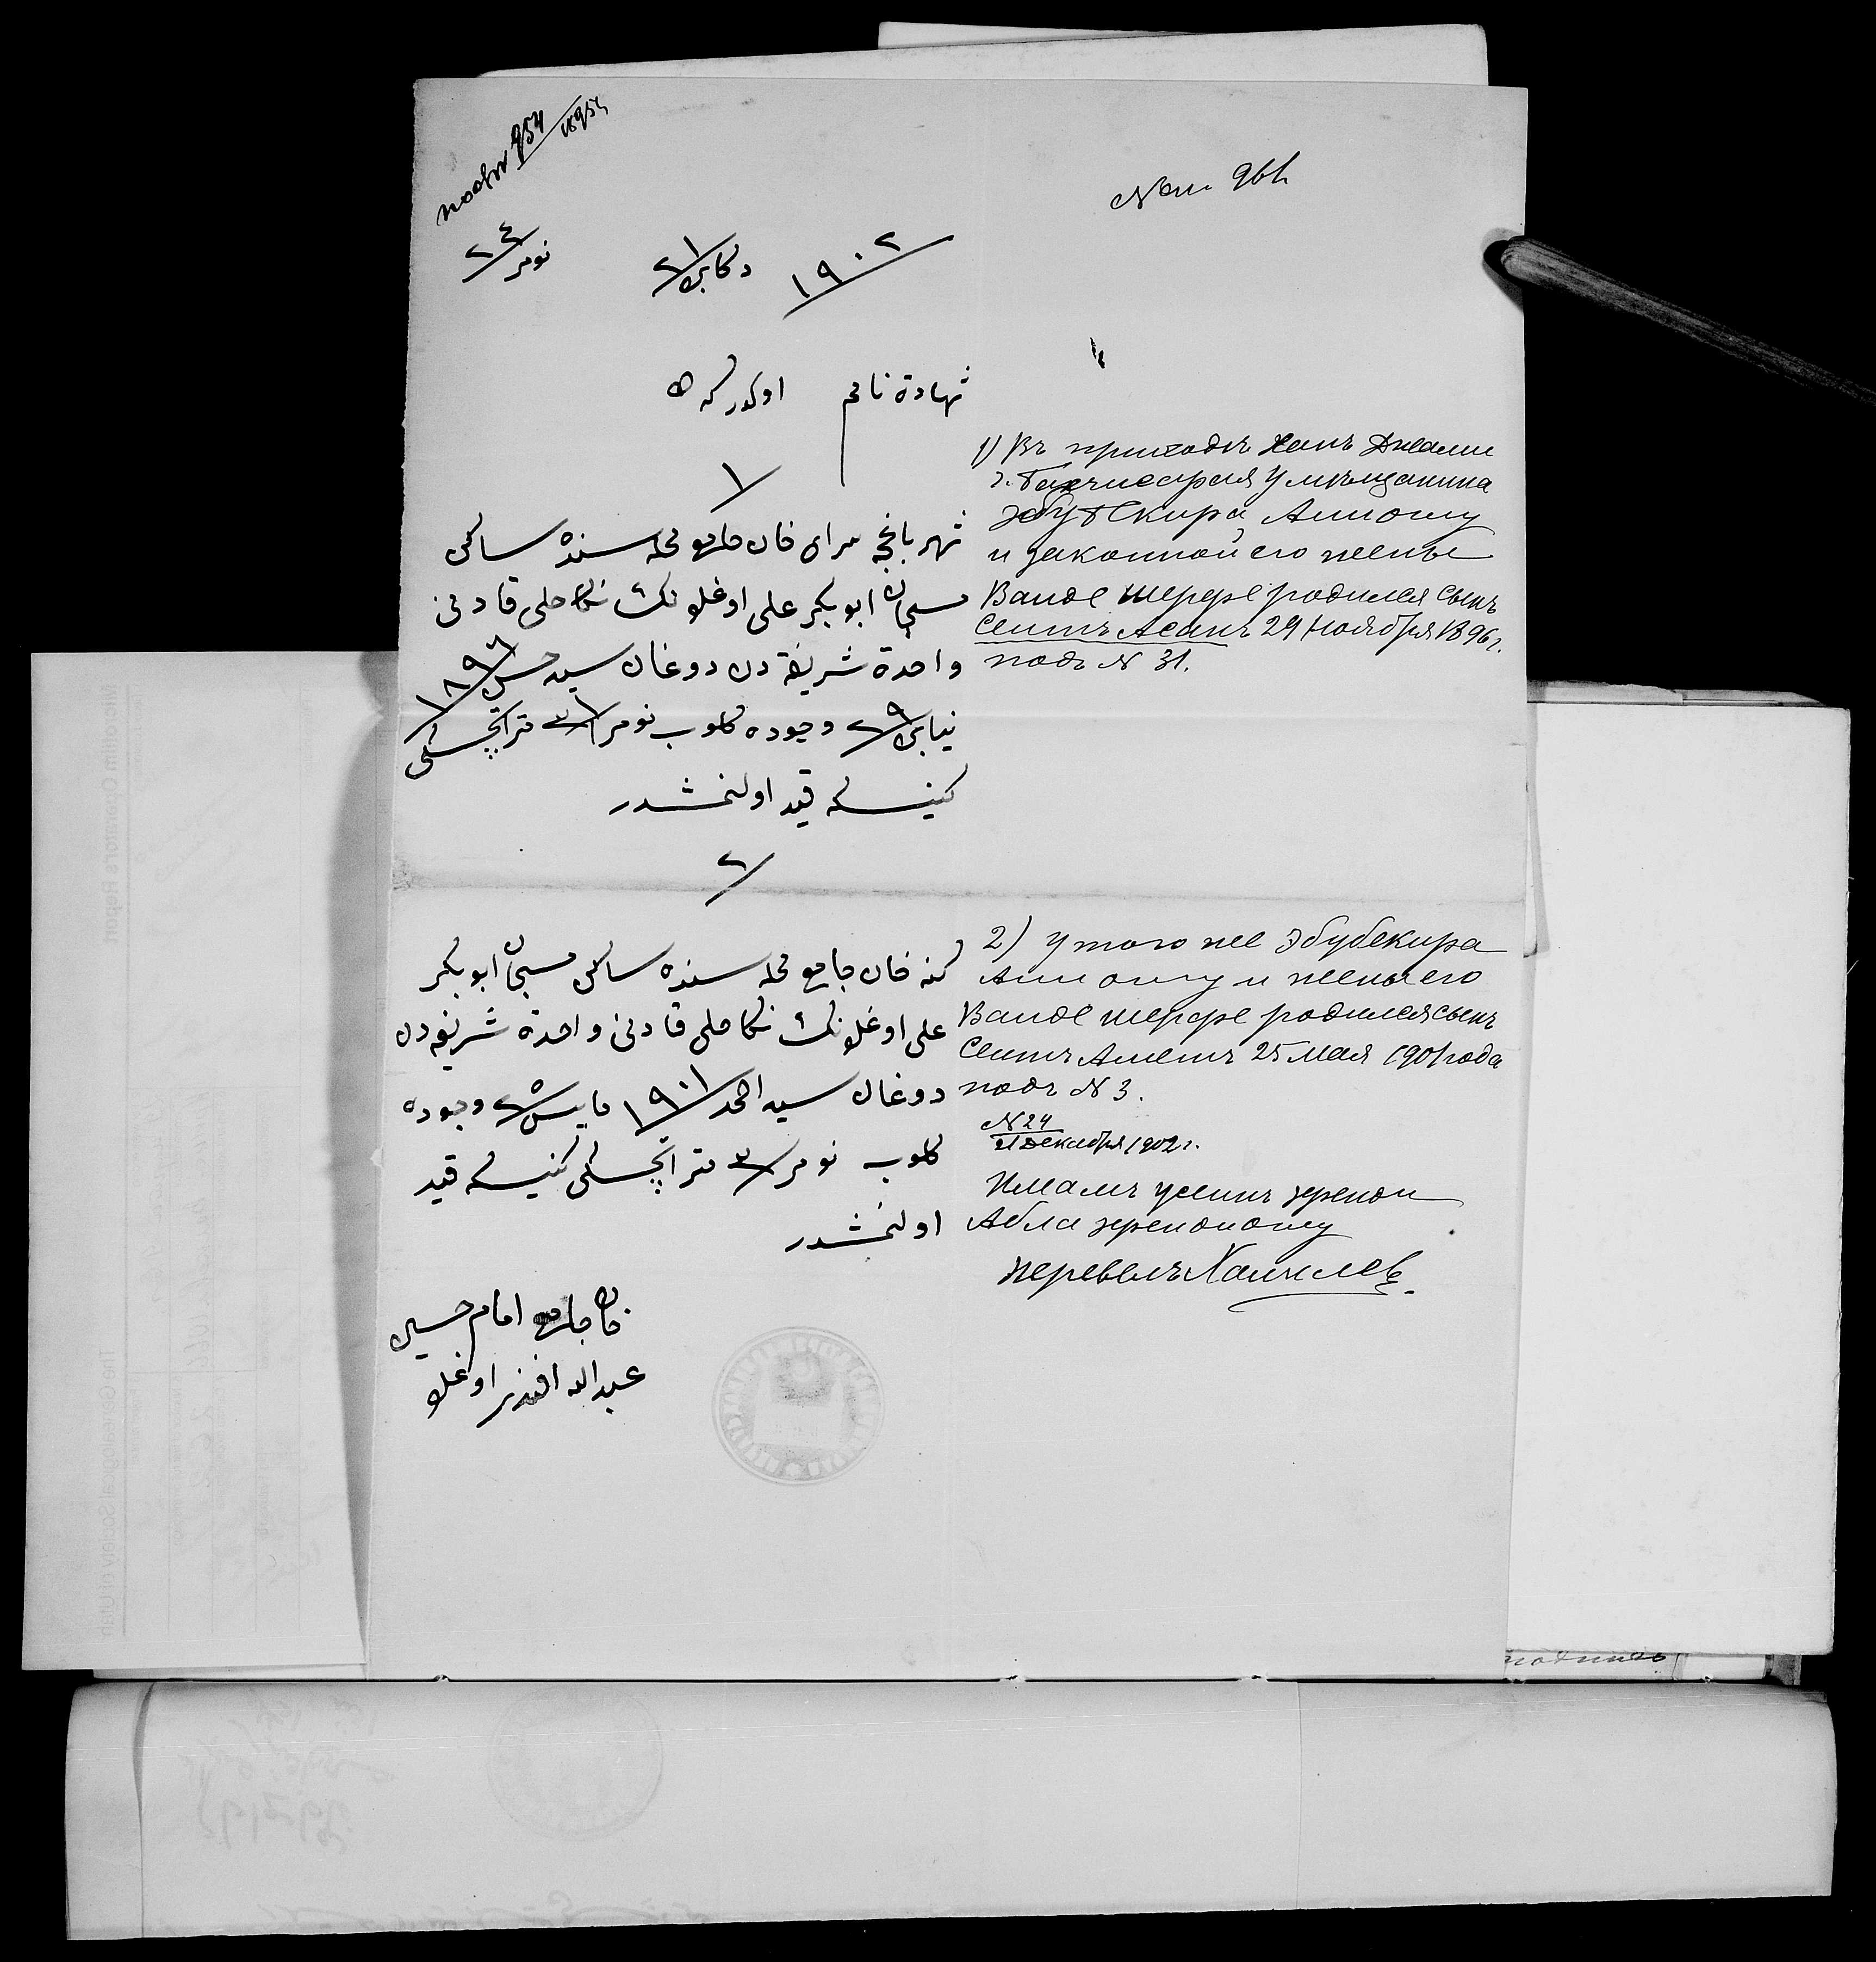 954/18954
961
١٩٠٢ دكابر ٢١ نومر ٢٤
شهادة نامه اولدر كه
١
شهر باغچه سراى خان جامع محله سنده ساكن
مسمى ابو بكر على اوغلونك نكاحلى قادنى
واحدة شريفه دن دوغان سيد حسن ١٨٩٦
نيابر ٢٩ وجوده كلوب نومر ٣١ متراچسكى
كنيسكه قيد اولنمشدر
٢
كنه خان جامع محله سنده ساكن مسمى ابو بكر
على اوغلونك نكاحلى قادنى واحدة شريفه دن
دوغان سيد احمد ١٩٠١ مايس ٢٥ وجوده
كلوب نومر ٣ متراچسكى كنيسكه قيد
اولنمشدر
خان جامع امام حسين
عبد الله افندى اوغلو
1) Въ приходѣ Ханъ Джами
г. Бахчисарая у мѣщанина
Эбубекира Али оглу
и законной его жены
Ваиде Шерфе родился сынъ
Сеитъ Асанъ 29 Ноября 1896 г.
подъ N 31.
2) у того же Эбубекира
Али оглу и жены его
Ваиде Шерфе родился сынъ
Сеитъ Аметъ 25 Мая 1901 года
подъ N 3.
N 24
21 Декабря 1902 г.
Имамъ Усеинъ эфенди
Абла эфенди оглу